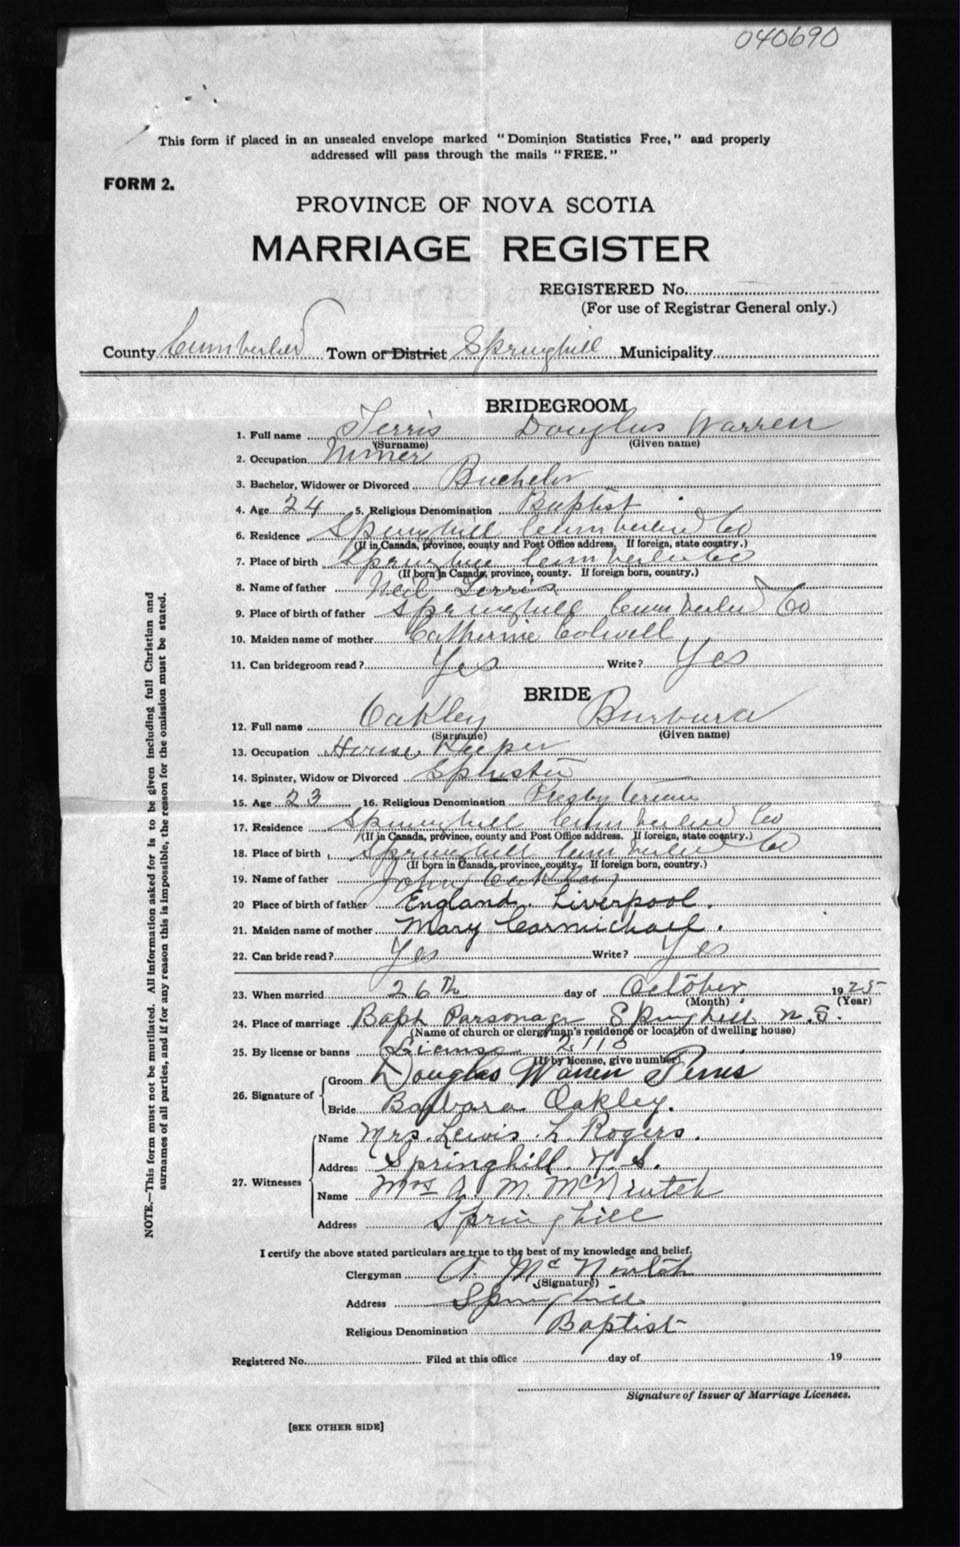 040690
This form if placed in an unsealed envelope marked "Dominion Statistics Free," and properly
addressed will pass through the mails "FREE."
FORM 2.
PROVINCE OF NOVA SCOTIA
MARRIAGE REGISTER
REGISTERED No.
(For use of Registrar General only.)
County Cumberland Town or District Springhill Municipality
BRIDEGROOM
1. Full name Terris Douglas Warren
(Surname) (Given name)
2. Occupation Miner
3. Bachelor, Widower or Divorced Bachelor
4. Age 24 5. Religious Denomination Baptist
6. Residence Springhill Cumberland Co
(If in Canada, province, county and Post Office address. If foreign, state country.)
7. Place of birth Springhill Cumberland Co
(If born in Canada, province, county. If foreign born, country.)
8. Name of father Neil Terris
9. Place of birth of father Springhill Cumberland Co
10. Maiden name of mother Catherine Colwell
11. Can bridegroom read? Yes Write? Yes
BRIDE
12. Full name Oakley Barbara
(Surname) (Given name)
13. Occupation House Keeper
14. Spinster, Widow or Divorced Spinster
15. Age 23 16. Religious Denomination Presbyterian
17. Residence Springhill Cumberland Co
(If in Canada, province, county and Post Office address. If foreign, state country.)
18. Place of birth Springhill Cumberland Co
(If born in Canada, province, county. If foreign born, country.)
19. Name of father John Oakley
20 Place of birth of father England. Liverpool.
21. Maiden name of mother Mary Carmichael.
22. Can bride read? Yes Write? Yes
23. When married 26th day of October 1925
(Month) (Year)
24. Place of marriage Bapt. Parsonage Springhill N.S.
(Name of church or clergyman's residence or location of dwelling house)
25. By license or banns License 2118
(If by license, give number)
26. Signature of Groom Douglas Warren Terris
Bride Barbara Oakley.
27. Witnesses Name Mrs. Lewis L. Rogers.
Address Springhill. N.S.
Name Mrs A. M. McNintch
Address Springhill
I certify the above stated particulars are true to the best of my knowledge and belief.
Clergyman A. McNintch
(Signature)
Address Springhill
Religious Denomination Baptist
Registered No. Filed at this office day of 19
Signature of Issuer of Marriage Licenses.
[SEE OTHER SIDE]
NOTE.—This form must not be mutilated. All information asked for is to be given including full Christian and
surnames of all parties, and if for any reason this is impossible, the reason for the omission must be stated.